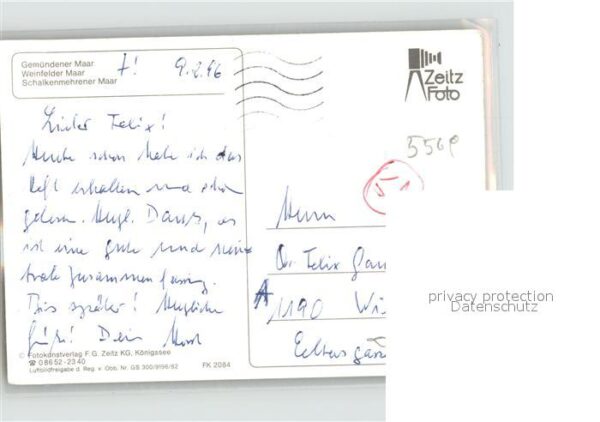 Gemündener Maar
Weinfelder Maar
Schalkenmehrener Maar
9.2.96
Zeitz
Foto
5509
Lieber Felix!
Heute schon habe ich das
Heft erhalten und schon
gelesen. Herzl. Dank, es
ist eine gute und neu-
trale Zusammenfassung.
Bis später! Herzliche
Grüße! Dein
Herrn
Dr. Felix
A
1190 Wi
privacy protection
Datenschutz
© Fotokunstverlag F. G. Zeitz KG, Königssee
☎ 08652-2340
Luftbildfreigabe d. Reg. v. Obb. Nr. GS 300/9196/82
FK 2084